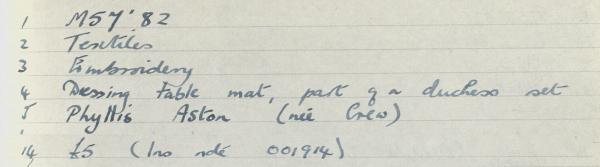 1 M57'82
2 Textiles
3 Embroidery
4 Dressing table mat, part of a duchess set
5 Phyllis Aston (née Crew)
14 £5 (Ins ndé 001914)